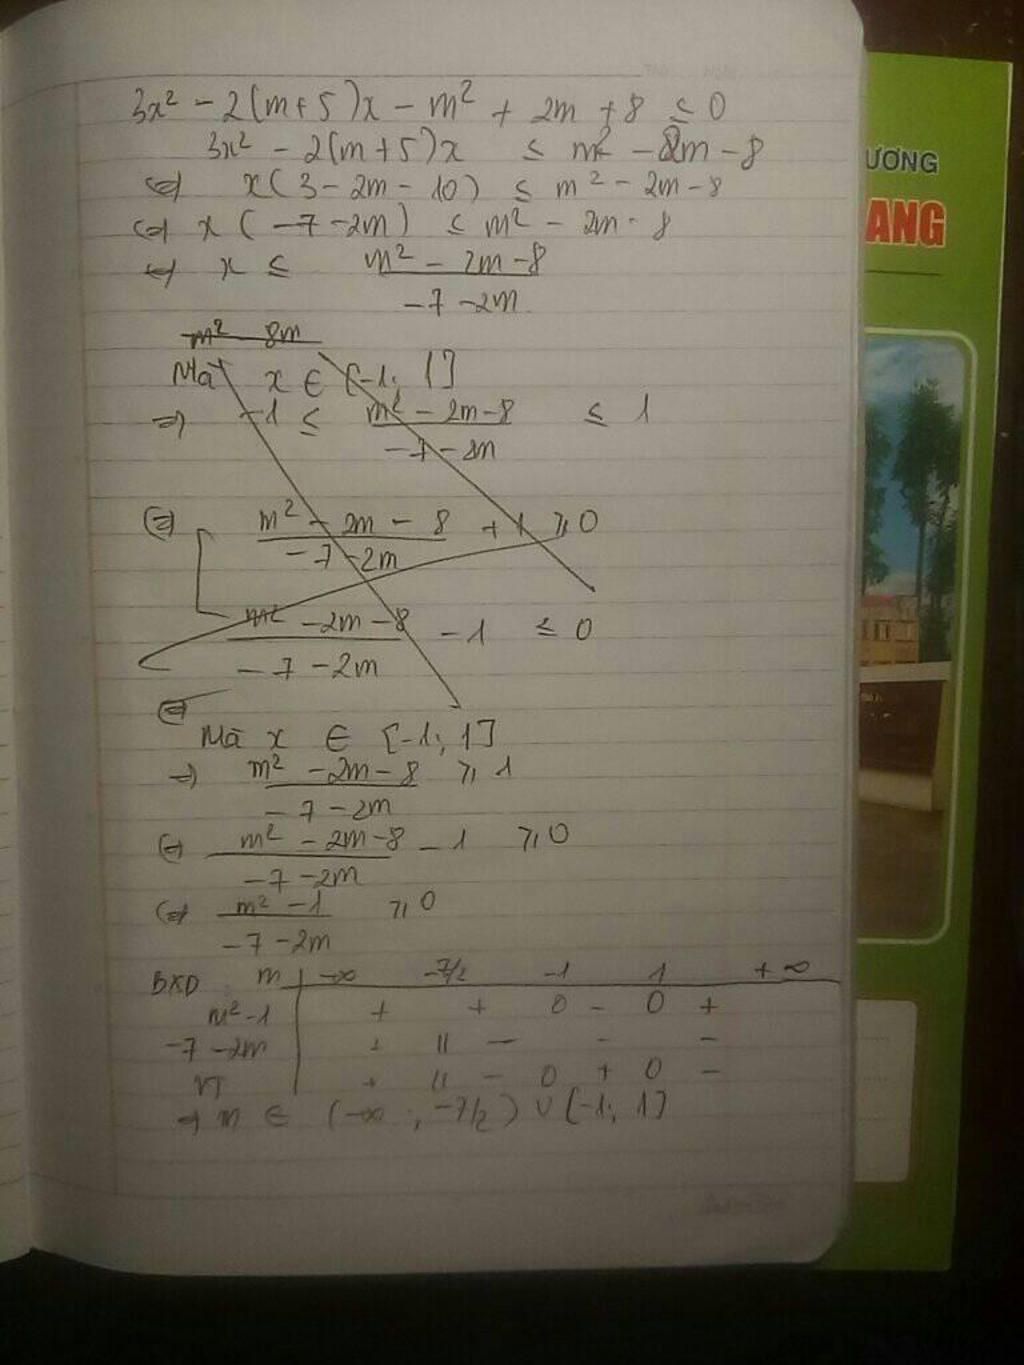 3x² - 2(m+5)x - m² + 2m + 8 ≤ 0
3x² - 2(m+5)x ≤ m² - 2m - 8
⇔ x(3 - 2m - 10) ≤ m² - 2m - 8
⇔ x(-7 - 2m) ≤ m² - 2m - 8
⇔ x ≤ \frac{m² - 2m - 8}{-7 - 2m}
m² 8m
Mà x ∈ [-1; 1]
⇒ -1 ≤ \frac{m² - 2m - 8}{-7 - 2m} ≤ 1
⇔ \frac{m² - 2m - 8}{-7 - 2m} + 1 ≥ 0
\frac{m² - 2m - 8}{-7 - 2m} - 1 ≤ 0
⇔
Mà x ∈ [-1; 1]
⇒ \frac{m² - 2m - 8}{-7 - 2m} ≥ 1
⇔ \frac{m² - 2m - 8}{-7 - 2m} - 1 ≥ 0
⇔ \frac{m² - 1}{-7 - 2m} ≥ 0
BXD m -∞ -7/2 -1 1 +∞
m² - 1 + + 0 - 0 +
-7 - 2m + || - - -
VT + || - 0 + 0 -
⇒ m ∈ (-∞; -7/2) ∪ [-1; 1]
ƯƠNG
ANG